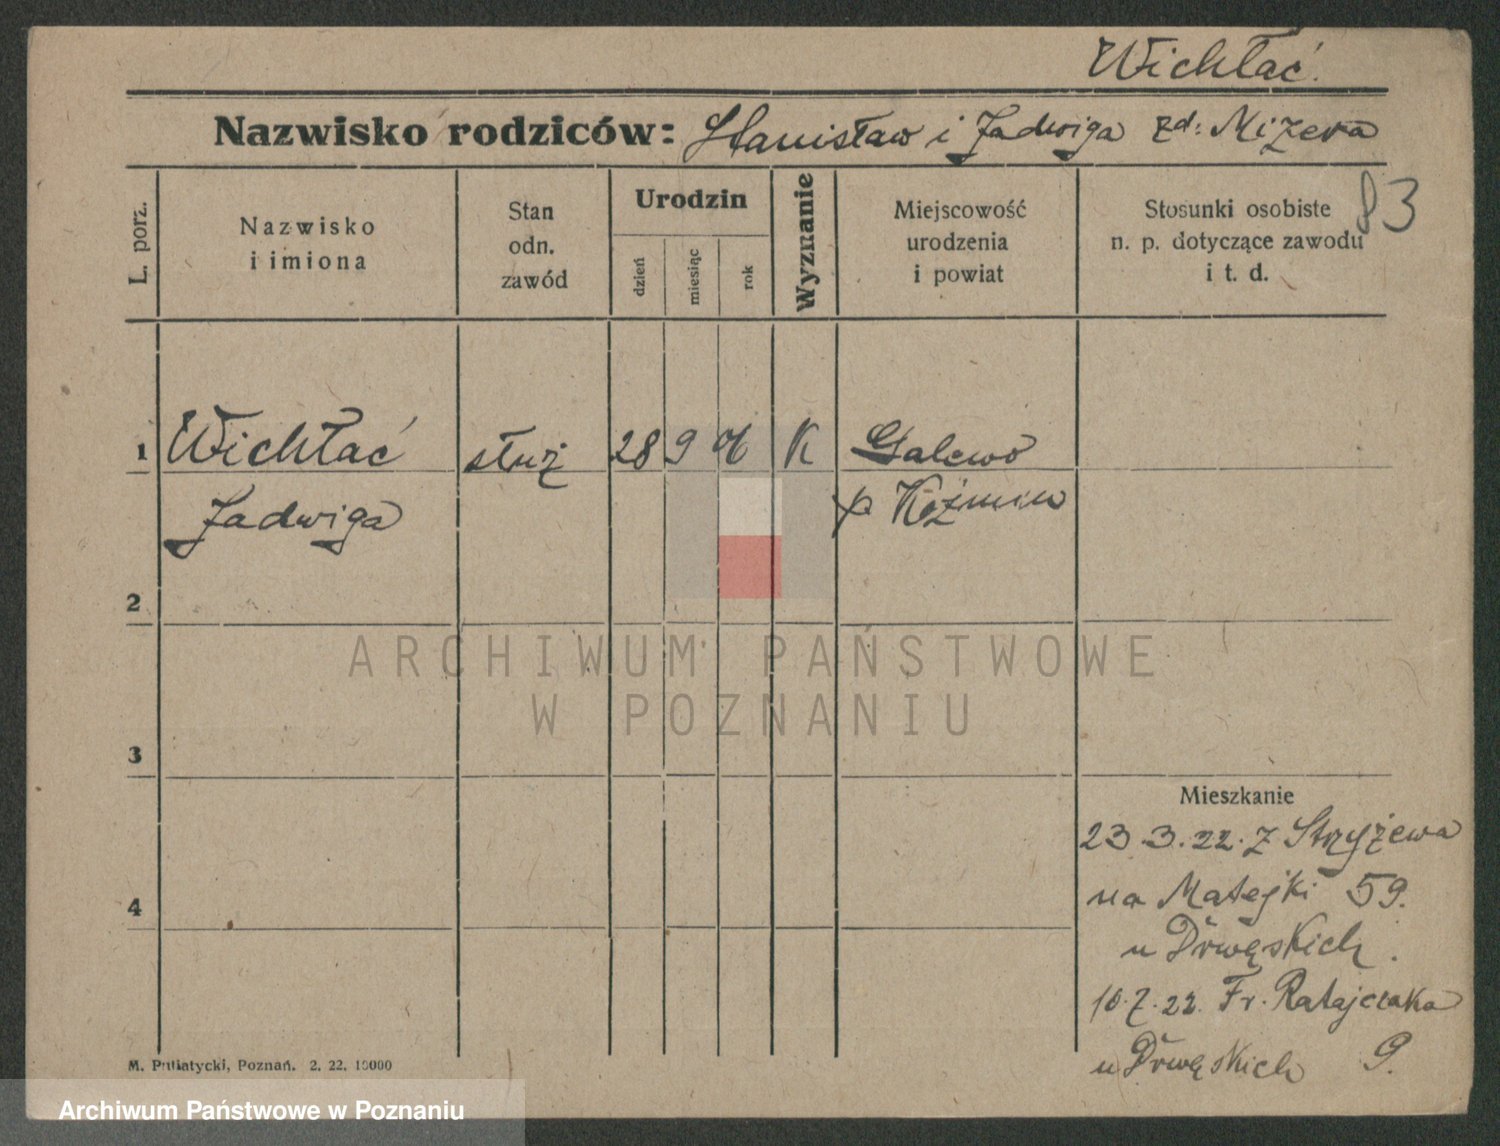 Wichłać.
Nazwisko rodziców: Stanisław i Jadwiga zd: Mizera
83
L. porz.
Nazwisko
i imiona
Stan
odn.
zawód
Urodzin
dzień
miesiąc
rok
Wyznanie
Miejscowość
urodzenia
i powiat
Stosunki osobiste
n. p. dotyczące zawodu
i t. d.
1 Wichłać służ 28 9 06 K Galewo
Jadwiga p. Koźmin
2
3
4
Mieszkanie
23.3.22. z Stryżewa
na Matejki 59.
u Drwęskich.
10.7.22. Fr. Ratajczaka
u Drwęskich 9.
M. Putiatycki, Poznań. 2. 22. 10000
ARCHIWUM PAŃSTWOWE
W POZNANIU
Archiwum Państwowe w Poznaniu